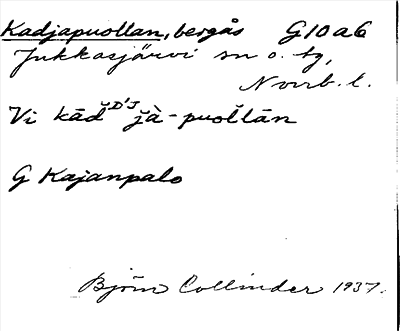 Kadjapuollan, bergås G10a6
Jukkasjärvi sn o. tg,
Nvrb. l.
Vi kād̆ᴰ'ᴶ j̆à-puol̆tān
G Kajanpalo
Björn Collinder 1937.